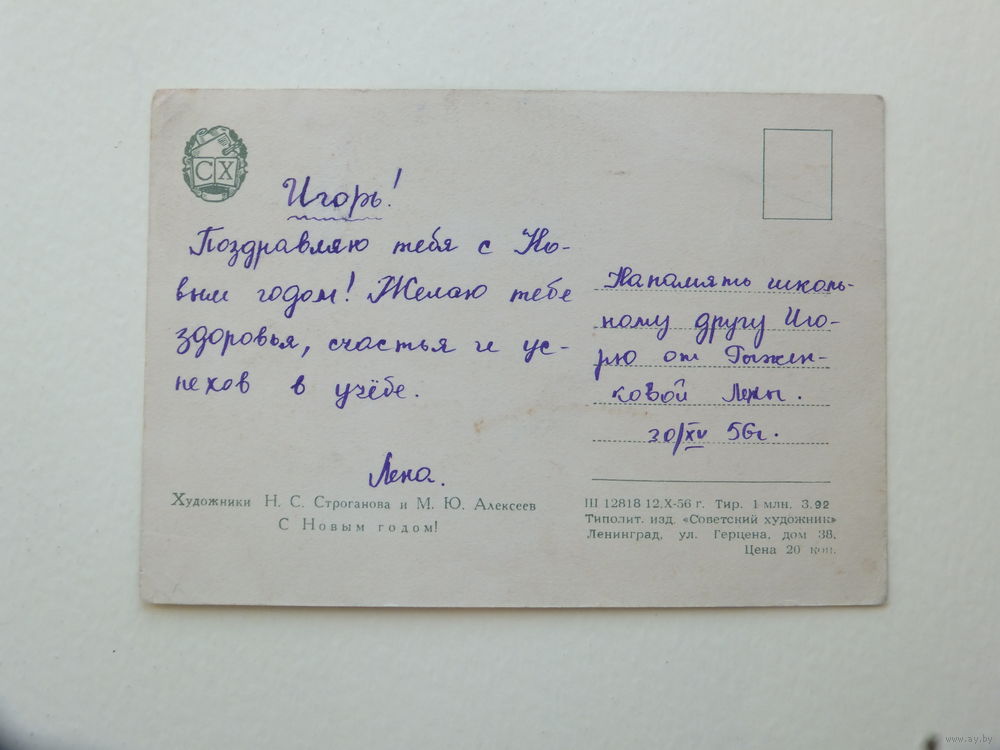 СХ
Игорь!
Поздравляю тебя с Но-
вым годом! Желаю тебе
здоровья, счастья и ус-
пехов в учёбе.
Лена.
На память школь-
ному другу Иго-
рю от Гыжен-
ковой Лены.
56г.
Художники Н. С. Строганова и М. Ю. Алексеев
С Новым годом!
Ш 12818 12.X-56 г. Тир. 1 млн. З.92
Типолит. изд. «Советский художник»
Ленинград, ул. Герцена, дом 38.
Цена 20 коп.
www.ay.by